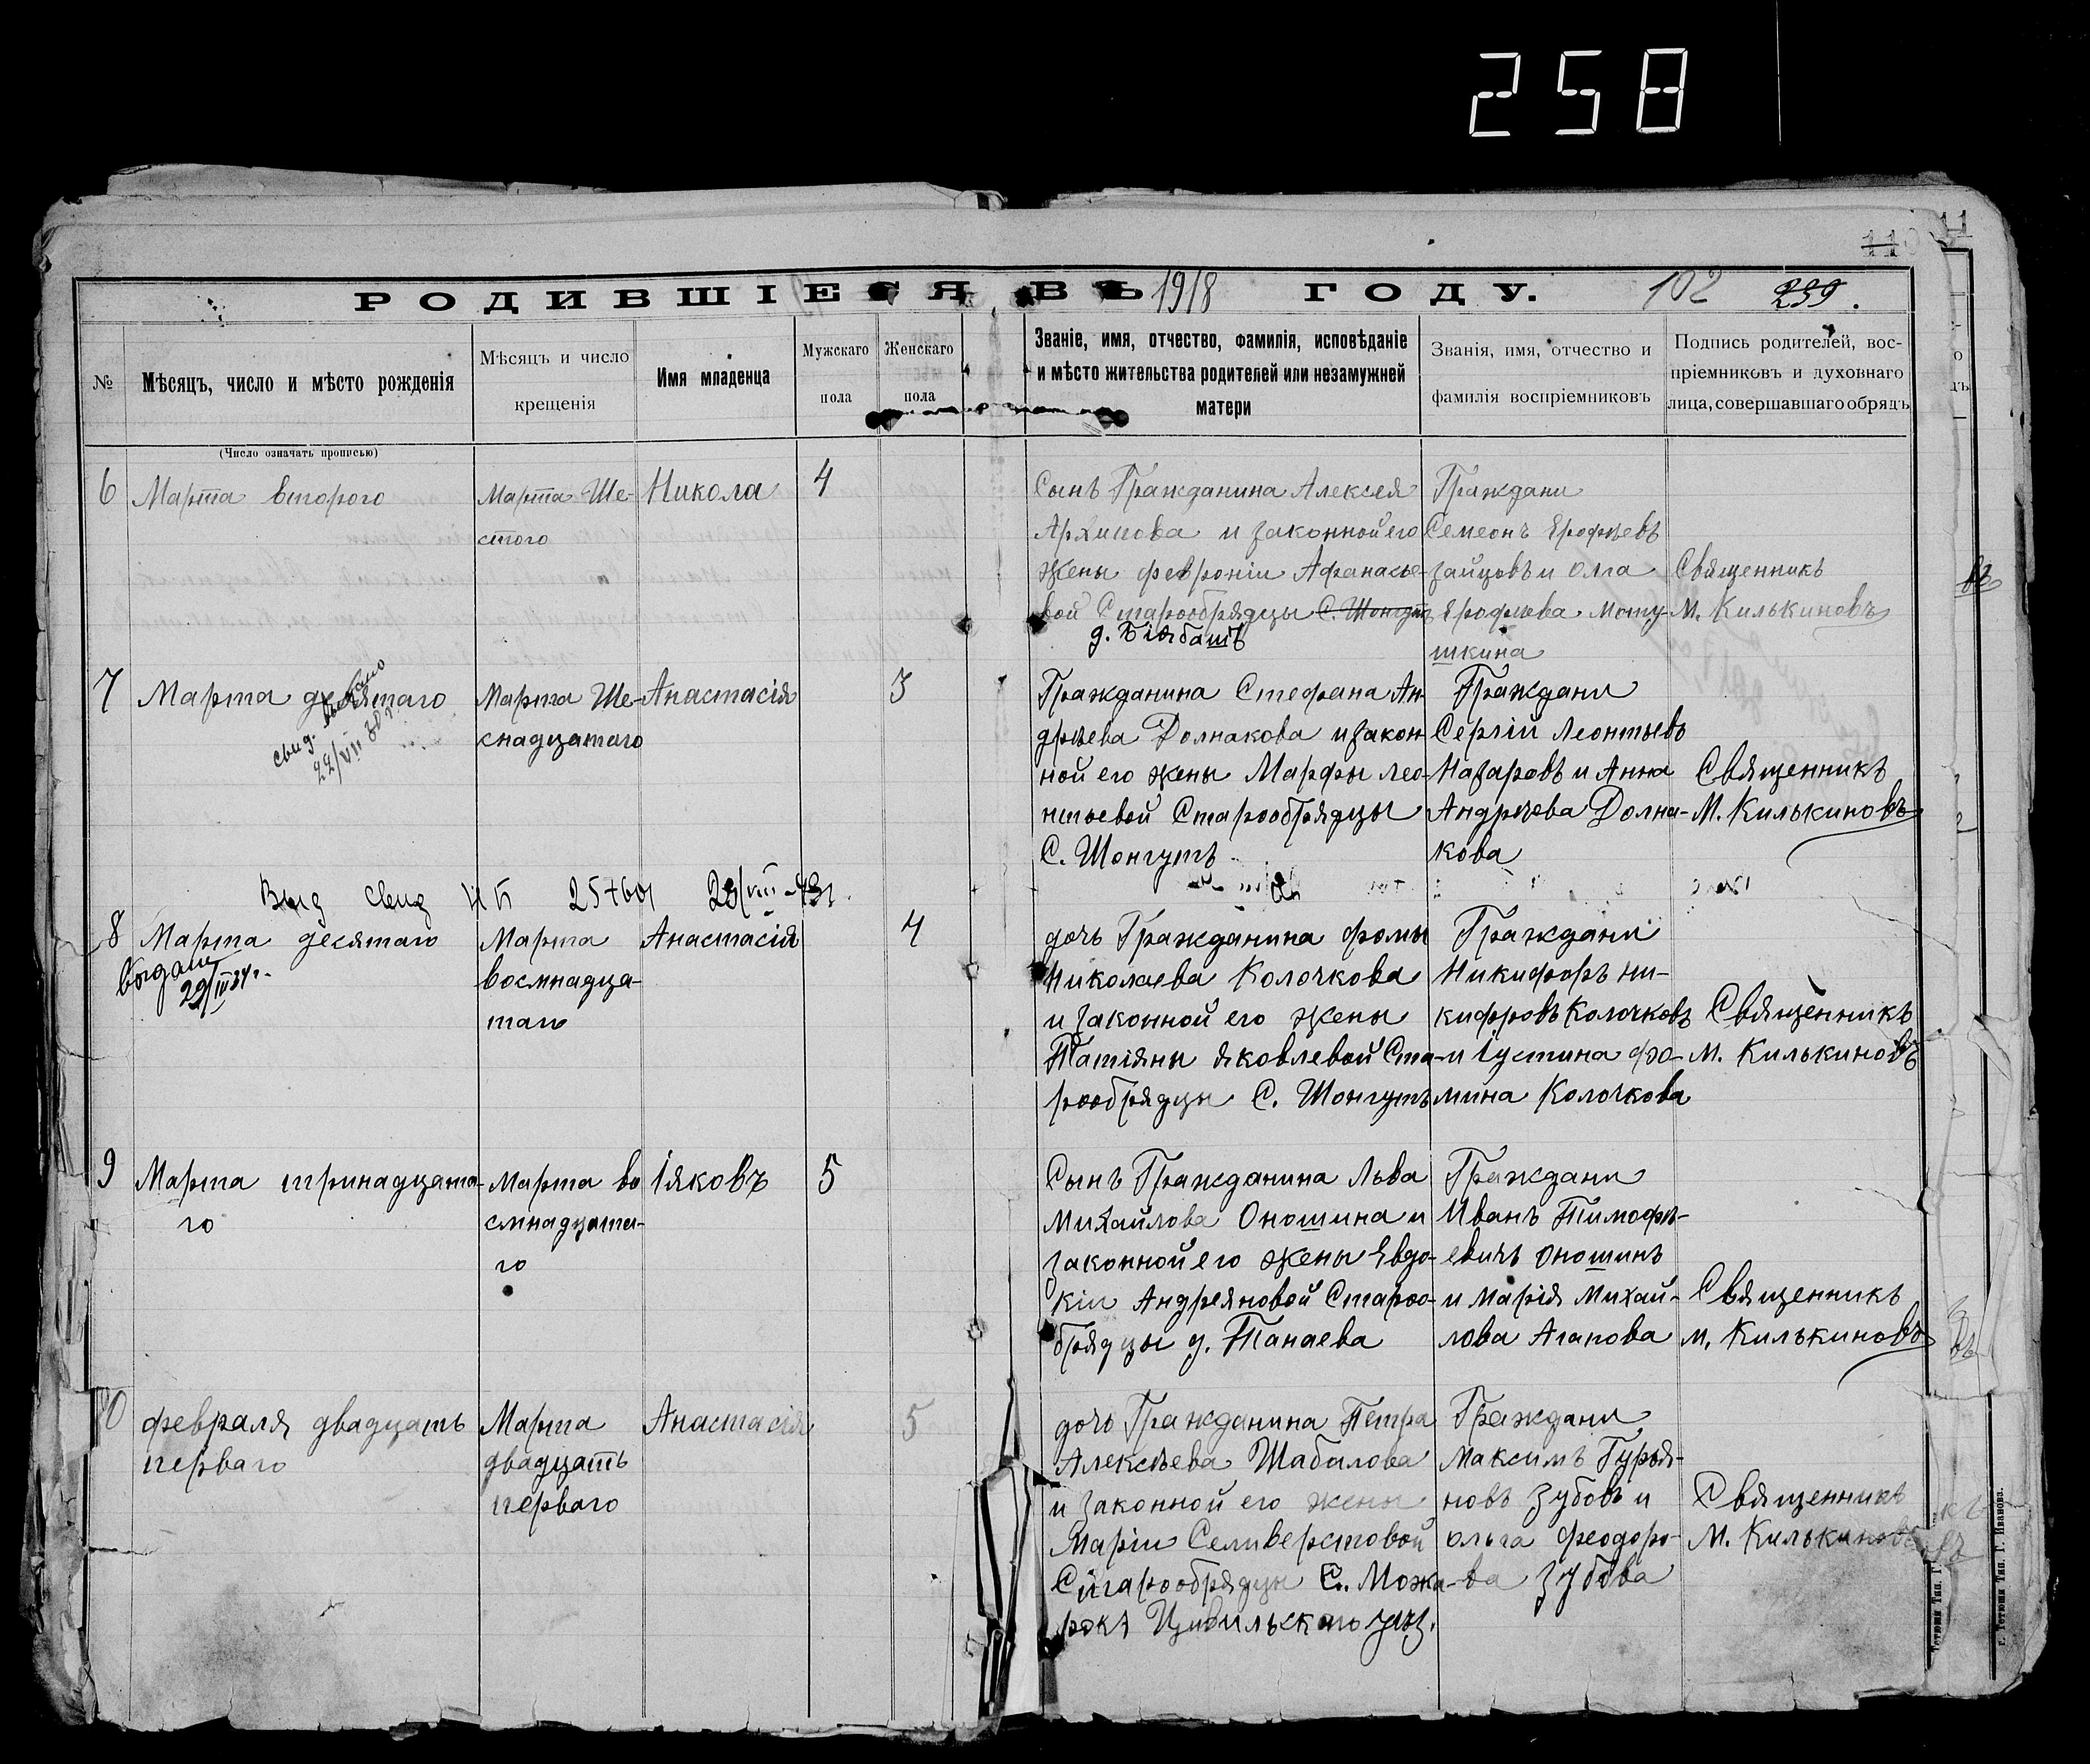 258
110
11
РОДИВШІЕСЯ ВЪ 1918 ГОДУ.
102 239.
№
Мѣсяцъ, число и мѣсто рожденія
Мѣсяцъ и число
крещенія
Имя младенца
Мужскаго
пола
Женскаго
пола
Званіе, имя, отчество, фамилія, исповѣданіе
и мѣсто жительства родителей или незамужней
матери
Званія, имя, отчество и
фамилія воспріемниковъ
Подпись родителей, вос-
пріемниковъ и духовнаго
лица, совершавшаго обрядъ
(Число означать прописью)
6
Марта второго
Марта Ше-
стого
Никола
4
Сынъ Гражданина Алексея
Архипова и законной его
жены Февроніи Афанасье-
вой Старообрядцы С. Шонгутъ
Граждани
Семеонъ Ерофѣевъ
Зайцовъ и Олга
Ерофѣева Моту-
шкина
Священникъ
М. Килькиновъ
7
Марта десятаго
22/VII
Марта Ше-
снадцатаго
Анастасія
3
Гражданина Стефана Ан-
дрѣева Долнакова и закон
ной его жены Марфы Лео-
нтьевой Старообрядцы
С. Шонгутъ
Граждани
Сергій Леонтьевъ
Назаровъ и Анна
Андрѣева Долна-
кова
Священникъ
М. Килькиновъ
Выд свид
8
Марта десятаго
выдано
29/III 34г.
Марта
восмнадца-
таго
Анастасія
4
дочь Гражданина Фомы
Николаева Колочкова
и законной его жены
Татіяны Яковлевой Ста-
рообрядцы С. Шонгутъ
Граждани
Никифоръ Ни-
кифровъ Колочковъ
и Іустина Фо-
мина Колочкова
Священникъ
М. Килькиновъ
9
Марта тринадцата-
го
Марта во
смнадцата-
го
Іяковъ
5
Сынъ Гражданина Льва
Михайлова Оношина и
законной его жены Евдо-
кіи Андреяновой Староо-
брядцы д. Танаева
Граждани
Иванъ Тимофѣ-
евичъ Оношинъ
и Марія Михай-
лова Агапова
Священникъ
М. Килькиновъ
10
Февраля двадцать
перваго
Марта
двадцать
перваго
Анастасія
5
дочь Гражданина Петра
Алексѣева Шабалова
и законной его жены
Маріи Селиверстовой
Старообрядцы С. Можа-
рокъ Цивильскаго уѣз.
Граждани
Максимъ Гурья-
новъ Зубовъ и
Ольга Феодоро-
ва Зубова
Священникъ
М. Килькиновъ
г. Тетюши Тип. Г. Иванова.